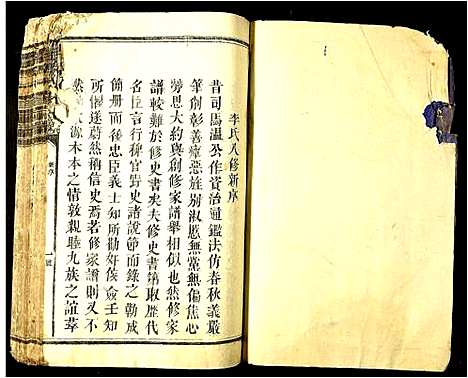 李氏八修新序
昔司馬溫公作資治通鑑法仿春秋義嚴
筆創彰善癉惡旌別淑慝無黨無偏焦心
勞思大約與創修家譜舉相似也然修家
譜較難於修史書矣夫修史書第取歷代
名臣言行稗官野史諸說節而錄之勒成
簡册而後忠臣義士知所勸奸侯僉壬知
所懼遂蔚然稱信史焉若修家譜則又不
然 源木本之情敦親睦九族之誼萃